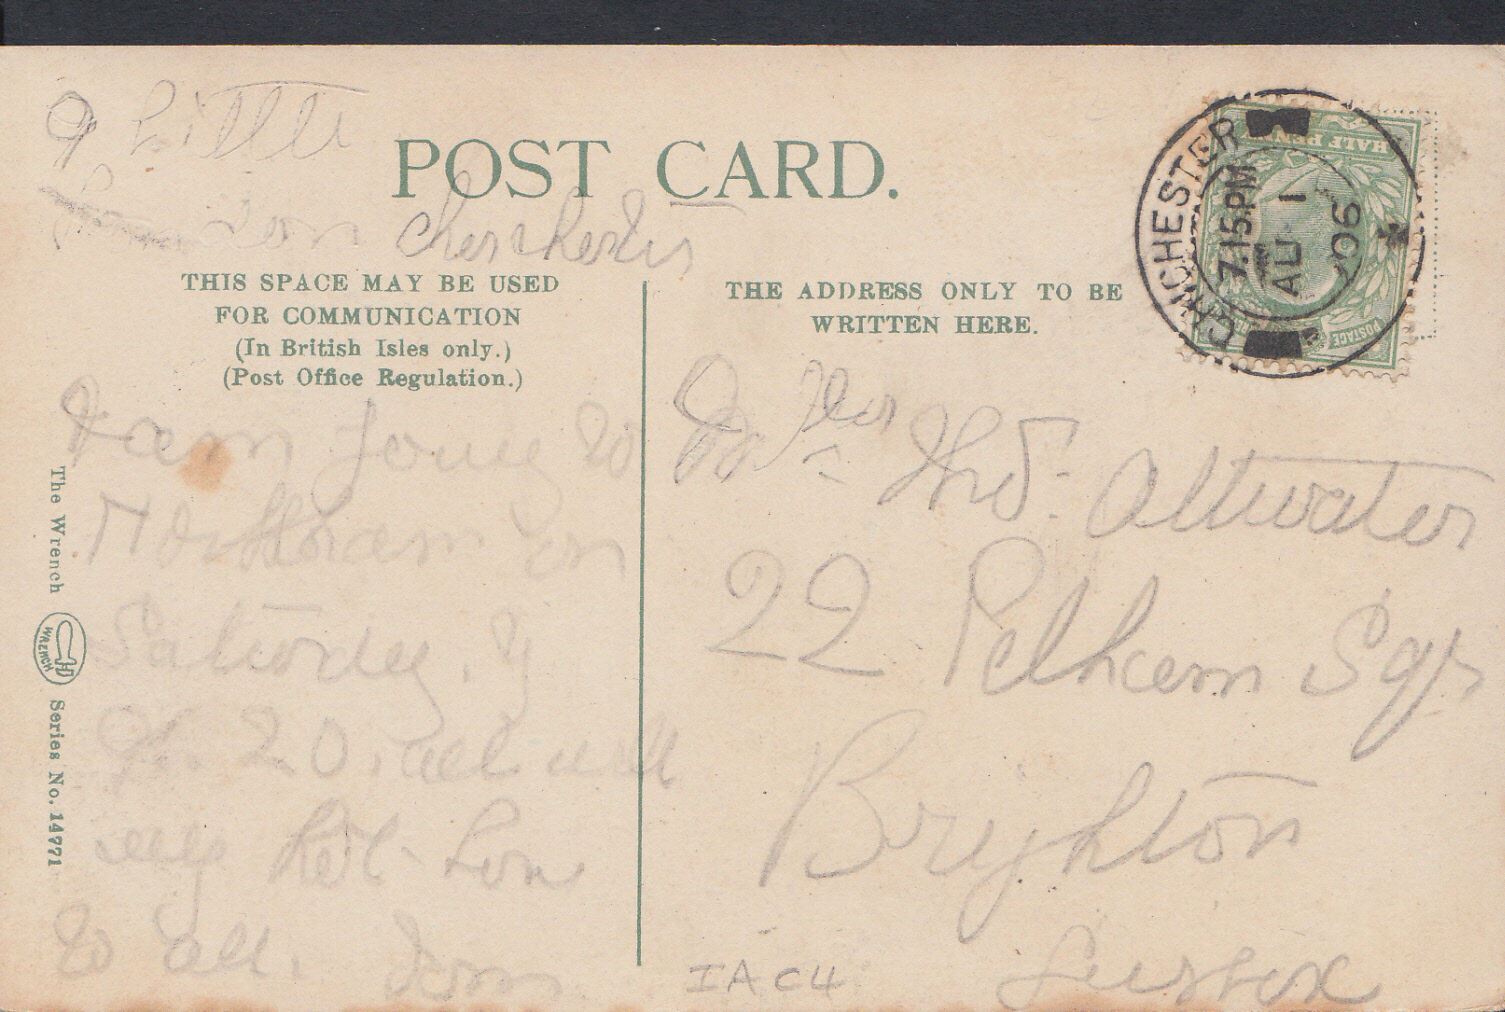 9 Little
London Chichester
POST CARD.
THIS SPACE MAY BE USED
FOR COMMUNICATION
(In British Isles only.)
(Post Office Regulation.)
THE ADDRESS ONLY TO BE
WRITTEN HERE.
CHICHESTER
7.15 PM
AU 1
06
HALF PENNY
POSTAGE
am going to
on
Saturday.
20. all well
to all. Tom
Attwater
22 Pelham Sqr
Brighton
Sussex
IAC4
The Wrench
WRENCH
Series No. 14771